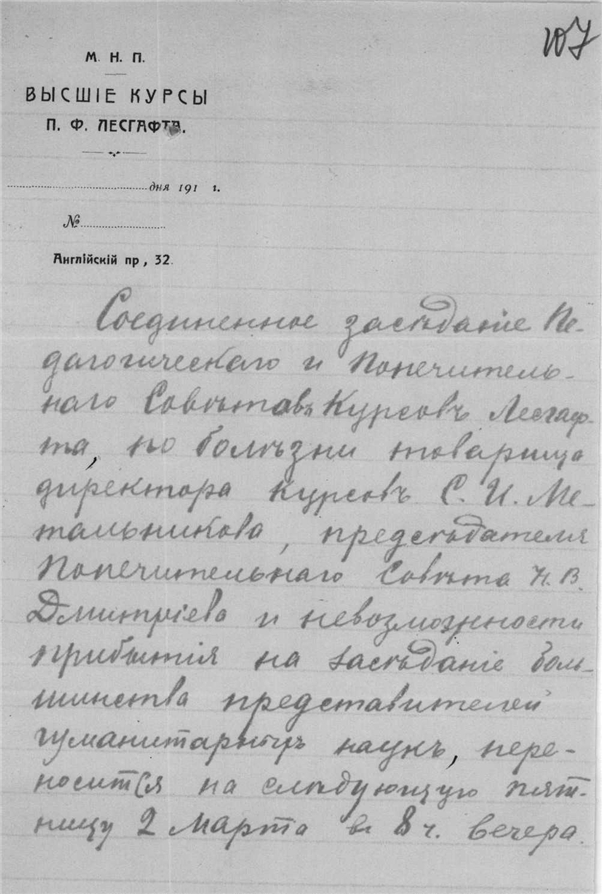 107
М. Н. П.
ВЫСШІЕ КУРСЫ
П. Ф. ЛЕСГАФТА.
дня 191 г.
№
Англійскій пр., 32.
Соединенное засѣданіе Пе-
дагогическаго и Попечитель-
наго Совѣтовъ Курсовъ Лесгаф-
та, по болѣзни товарища
директора курсовъ С. И. Ме-
тальникова, предсѣдателя
Попечительнаго Совѣта Н. В.
Дмитріева и невозможности
прибытія на засѣданіе боль-
шинства представителей
гуманитарныхъ наукъ, пере-
носится на слѣдующую пят-
ницу 2 марта въ 8 ч. вечера.